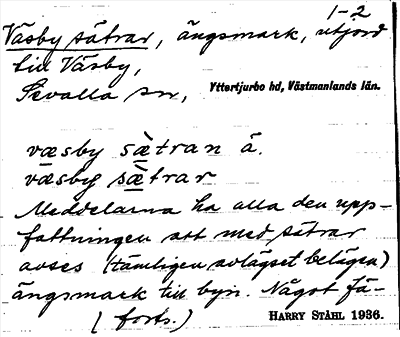 1-2
Väsby sätrar, ängsmark, utjord
till Väsby,
Sevalla sn, Yttertjurbo hd, Västmanlands län.
væsby sætran ä.
væsby sætrar
Meddelarna ha alla den upp-
fattningen att med sätrar
avses (tämligen avlägset belägen)
ängsmark till byn. Något fä-
(forts.) HARRY STÅHL 1936.